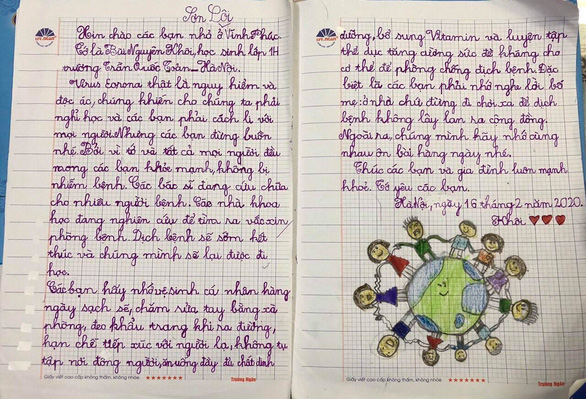 Sơn Lôi
Xin chào các bạn nhỏ ở Vĩnh Phúc.
Tớ là Bùi Nguyên Khôi, học sinh lớp 1H
trường Trần Quốc Toản – Hà Nội.
Virus Corona thật là nguy hiểm và
độc ác, chúng khiến cho chúng ta phải
nghỉ học và các bạn phải cách li với
mọi người. Nhưng các bạn đừng buồn
nhé. Bởi vì tớ và tất cả mọi người đều
mong các bạn khỏe mạnh, không bị
nhiễm bệnh. Các bác sĩ đang cứu chữa
cho nhiều người bệnh. Các nhà khoa
học đang nghiên cứu để tìm ra vắc xin
phòng bệnh. Dịch bệnh sẽ sớm kết
thúc và chúng mình sẽ lại được đi
học.
Các bạn hãy nhớ vệ sinh cá nhân hàng
ngày sạch sẽ, chăm rửa tay bằng xà
phòng, đeo khẩu trang khi ra đường,
hạn chế tiếp xúc với người lạ, không tụ
tập nơi đông người, ăn uống đầy đủ chất dinh
Giấy viết cao cấp không thấm, không nhòe
Trường Ngân
dưỡng, bổ sung Vitamin và luyện tập
thể dục tăng cường sức đề kháng cho
cơ thể để phòng chống dịch bệnh. Đặc
biệt là các bạn phải nhớ nghe lời bố
mẹ: ở nhà chứ đừng đi chơi xa để dịch
bệnh không lây lan ra cộng đồng.
Ngoài ra, chúng mình hãy nhớ cùng
nhau ôn bài hàng ngày nhé.
Chúc các bạn và gia đình luôn mạnh
khỏe. Tớ yêu các bạn.
Hà Nội, ngày 16 tháng 2 năm 2020.
Khôi
Giấy viết cao cấp không thấm, không nhòe
Trường Ngân